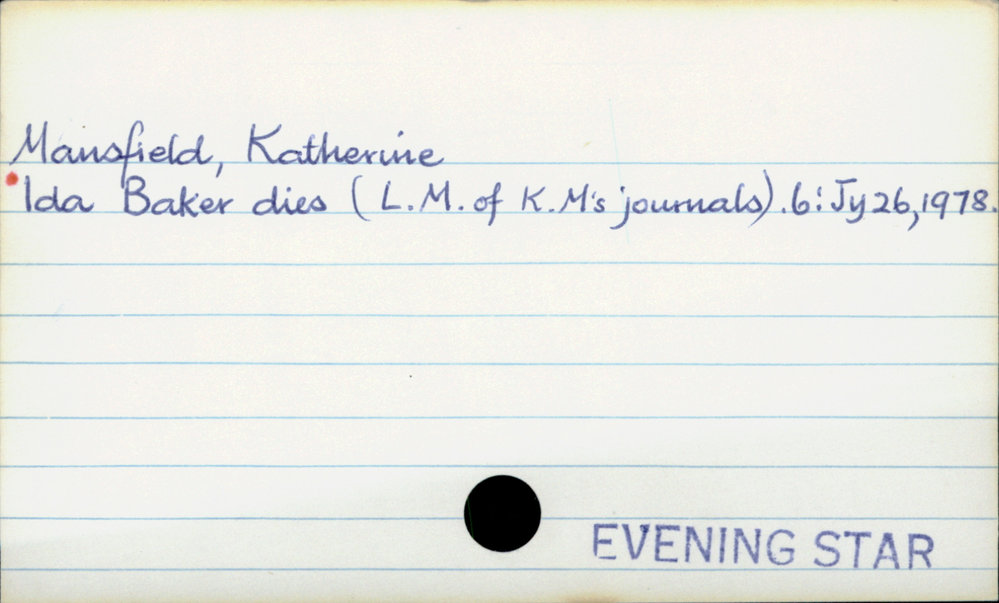 Mansfield, Katherine
Ida Baker dies (L.M. of K.M's journals). 6: Jy 26, 1978.
EVENING STAR